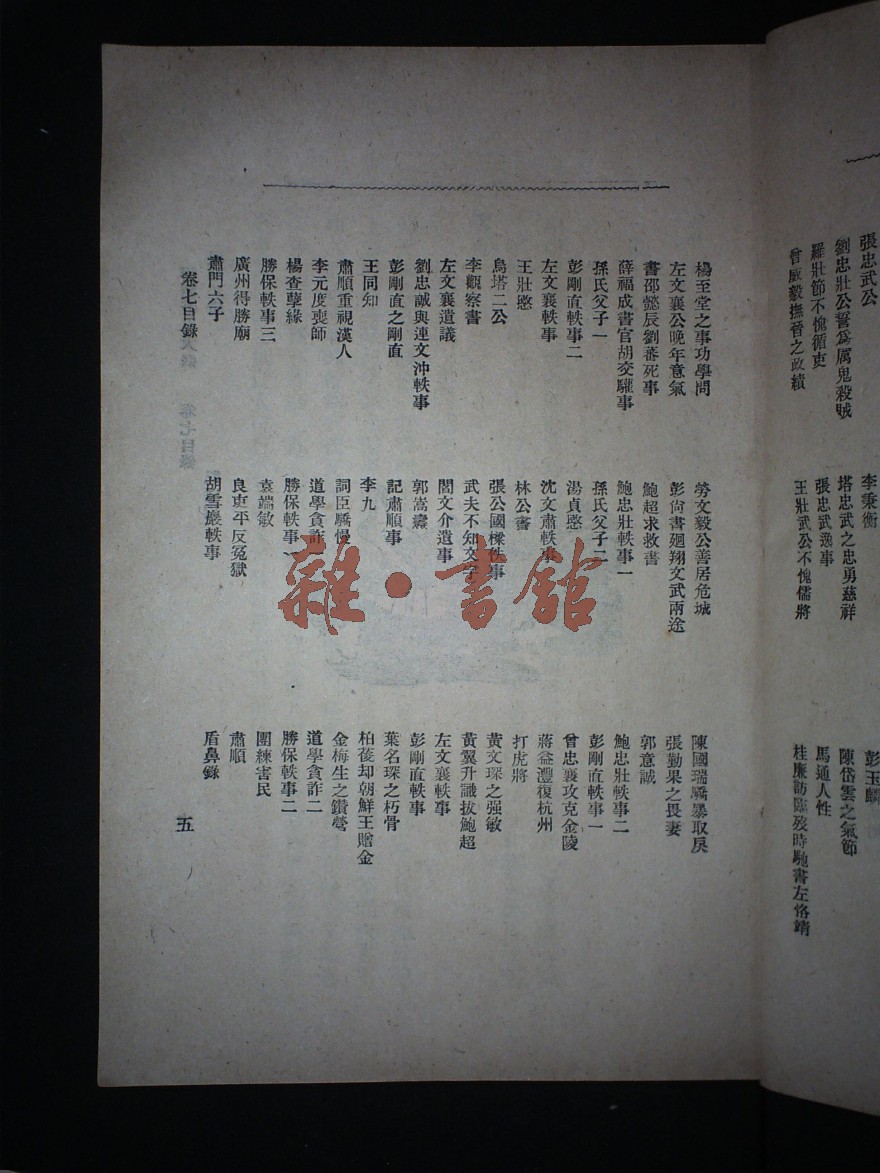 張忠武公
李秉衡
彭玉麟
劉忠壯公誓爲厲鬼殺賊
塔忠武之忠勇慈祥
陳岱雲之氣節
羅壯節不愧循吏
張忠武逸事
馬通人性
曾威毅撫晉之政績
王壯武公不愧儒將
桂廉訪臨歿時馳書左恪靖
楊至堂之事功學問
勞文毅公善居危城
陳國瑞驕暴取戾
左文襄公晚年意氣
彭尙書廻翔文武兩途
張勤果之畏妻
書邵懿辰劉蕃死事
鮑超求救書
郭意誠
薛福成書官胡交驩事
鮑忠壯軼事一
鮑忠壯軼事二
孫氏父子一
孫氏父子二
彭剛直軼事一
彭剛直軼事二
湯貞愍
曾忠襄攻克金陵
左文襄軼事
沈文肅軼事
蔣益澧復杭州
王壯愍
林公
打虎將
烏塔二公
張公國樑軼事
黃文琛之强敏
李觀察書
武夫不知文字
黃翼升識拔鮑超
左文襄遺議
閻文介遺事
左文襄軼事
劉忠誠與連文沖軼事
郭嵩燾
彭剛直軼事
彭剛直之剛直
記肅順事
葉名琛之朽骨
王同知
李九
柏葰却朝鮮王贈金
肅順重視漢人
詞臣驕慢
金梅生之鑽營
李元度喪師
道學貪詐
道學貪詐二
楊查孽緣
勝保軼事一
勝保軼事二
勝保軼事三
袁端敏
團練害民
廣州得勝廟
良吏平反冤獄
肅順
肅門六子
胡雪巖軼事
盾鼻錄
卷七目錄
五
雜·書舘